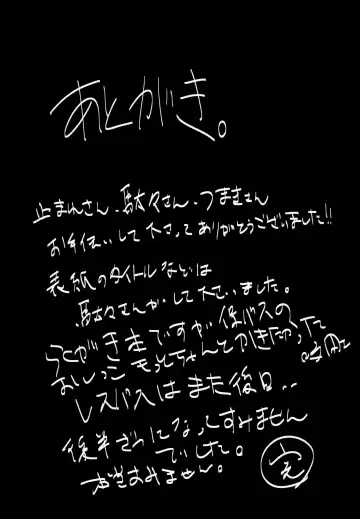 あとがき。
止まんさん、駄々さん、つまきさん
お手伝いして下さってありがとうございました!!
表紙のタイトルなどは
駄々さんがして下さいました。
らくがきまですが保バスの
おしっこもっとちゃんとかきたかった
レズバスはまた後日..
後半ざつになってすみません
でした。
おすみません。
完